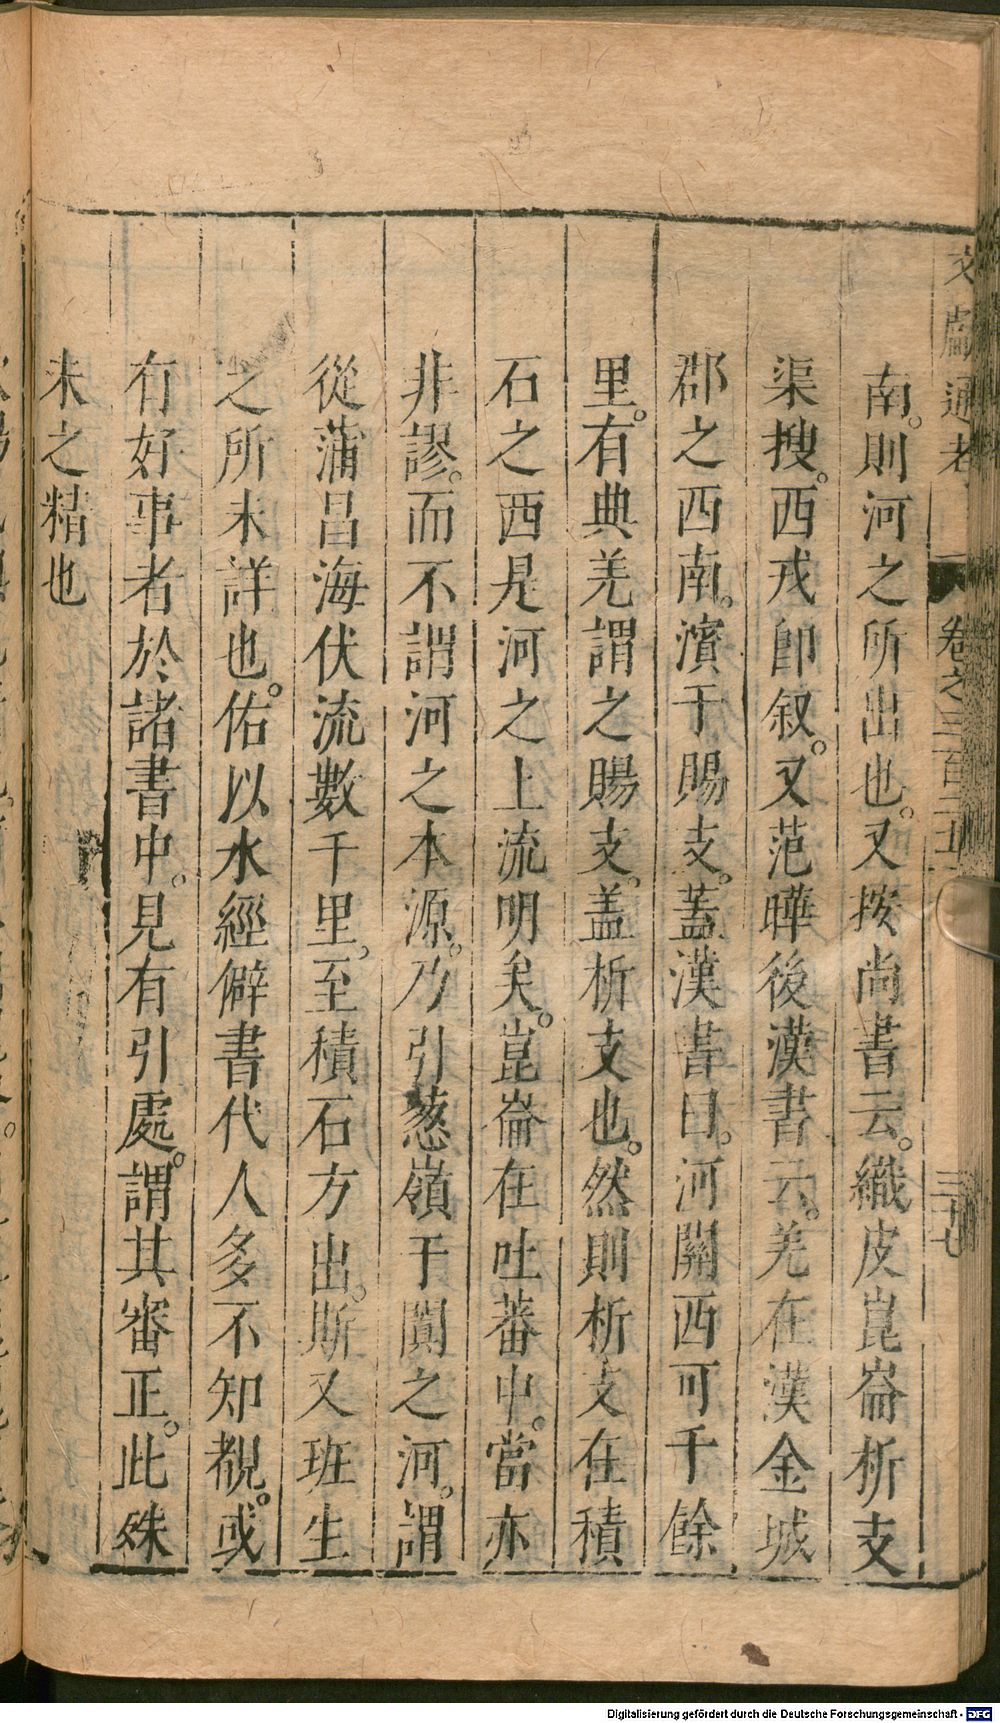 文獻通考 卷之三百二十二 三十七
南。則河之所出也。又按尚書云。織皮崑崙析支
渠搜。西戎即叙。又范曄後漢書云。羌在漢金城
郡之西南。濱于賜支。蓋漢書曰。河關西可千餘
里。有典羌謂之賜支。盖析支也。然則析支在積
石之西是河之上流明矣。崑崙在吐蕃中。當亦
非謬。而不謂河之本源。乃引葱嶺于闐之河。謂
從蒲昌海伏流數千里。至積石方出。斯又班生
之所未詳也。佑以水經僻書代人多不知覩。或
有好事者於諸書中。見有引處。謂其審正。此殊
未之精也
Digitalisierung gefördert durch die Deutsche Forschungsgemeinschaft - DFG